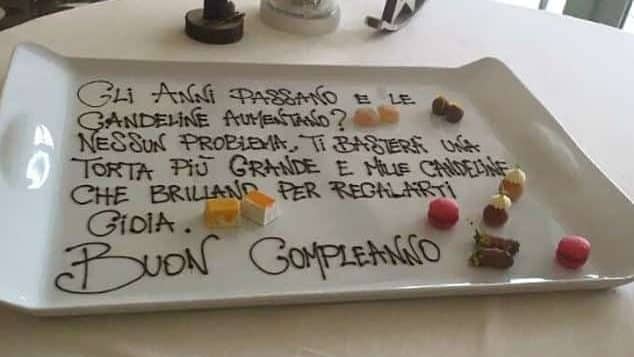 GLI ANNI PASSANO E LE
CANDELINE AUMENTANO?
NESSUN PROBLEMA. TI BASTERÀ UNA
TORTA PIÙ GRANDE E MILLE CANDELINE
CHE BRILLANO PER REGALARTI
GIOIA.
BUON COMPLEANNO